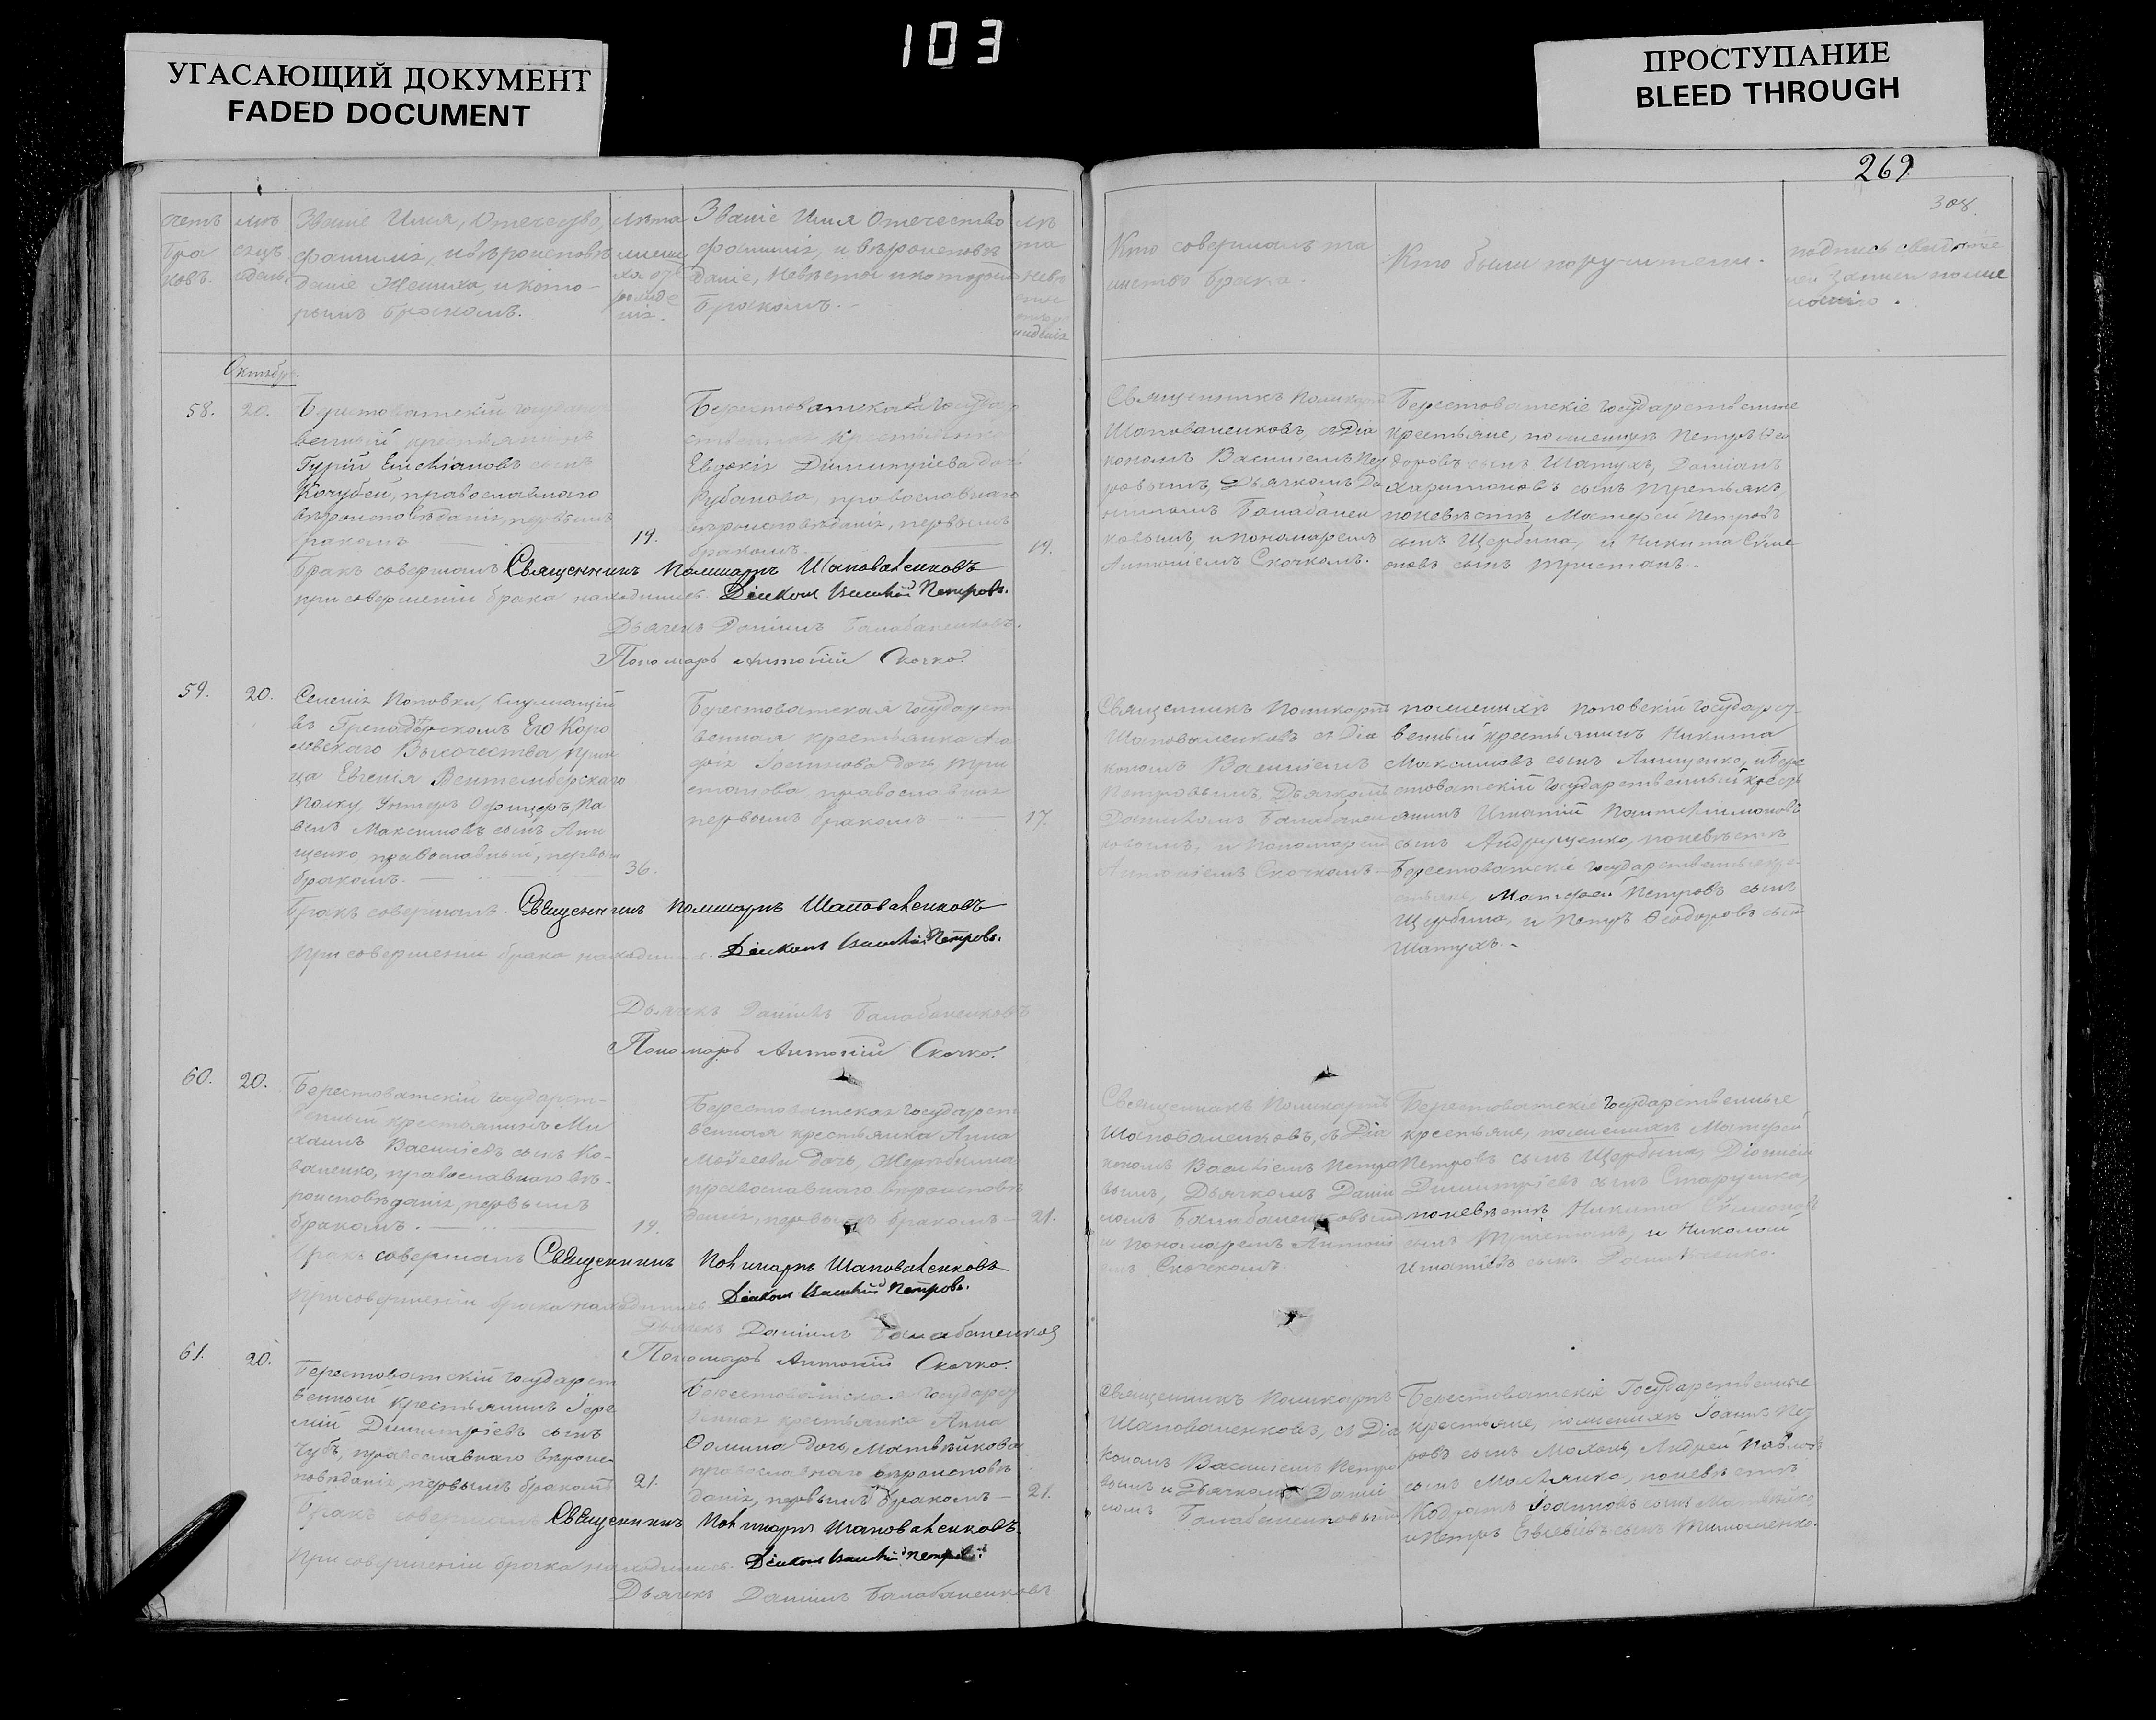 103
УГАСАЮЩИЙ ДОКУМЕНТ
FADED DOCUMENT
ПРОСТУПАНИЕ
BLEED THROUGH
269
308.
Счетъ
бра
ковъ.
Мѣ
сяцъ
и день.
Званіе Имя, Отечество,
фамилія, и вѣроисповѣ
даніе Жениха, и кото-
рымъ бракомъ.
Лѣта
жени
ха
Званіе Имя Отечество
фамилія, и вѣроисповѣ
даніе, Невѣсты и которымъ
бракомъ.
Лѣ
та
невѣ
Кто совершалъ та
инство брака.
Кто были поручители.
подпись
записи
Октябрь.
58.
20.
Берестоватскій государст
венный крестьянинъ
Гурій Емиліановъ сынъ
Кочубей, православнаго
вѣроисповѣданія, первымъ
бракомъ
19.
Берестоватская государ
ственная крестьянка
Евдокія Димитріева дочь
Рубанова, православнаго
вѣроисповѣданія, первымъ
бракомъ.
19.
Священникъ Поликарпъ
Шаповаленковъ, съ Діа
кономъ Василіемъ Пет
ровымъ, Дьячкомъ Да
ніиломъ Балабанен
ковымъ, и пономаремъ
Антоніемъ Скочкомъ.
Берестоватскіе государственные
крестьяне, по женихѣ Петръ Ѳео
доровъ сынъ Шатухъ, Даміанъ
Харитоновъ сынъ Третьякъ,
по невѣстѣ Матфей Петровъ
сынъ Щербина, и Никита Симе
оновъ сынъ Тристанъ.
Бракъ совершалъ Священникъ Поликарпъ Шаповаленковъ
при совершеніи брака находились Діаконъ Василій Петровъ.
Дьячекъ Даніилъ Балабаненковъ.
Пономарь Антоній Скочко.
59.
20.
Селенія Поповки, служащій
въ Гренадерскомъ Его Коро
левскаго Высочества Прин
ца Евгенія Виртембергскаго
полку, Унтеръ Офицеръ, Па
велъ Максимовъ сынъ Ани
щенко, православный, первымъ
бракомъ.
36.
Берестоватская государст
венная крестьянка
дочь, Три
станова, православная
первымъ бракомъ.
17.
Священникъ Поликарпъ
Шаповаленковъ съ Діа
кономъ Василіемъ
Петровымъ, Дьячкомъ
Даніиломъ Балабанен
ковымъ, и Пономаремъ
Антоніемъ Скочкомъ.
по женихѣ Поповскій государст
венный крестьянинъ Никита
Максимовъ сынъ Анищенко, и Бере
стоватскій государственный кресть
янинъ Игнатій Пантелимоновъ
сынъ Андрущенко, по невѣстѣ
Берестоватскіе государственные кре
стьяне, Матфей Петровъ сынъ
Щербина, и Петръ Ѳеодоровъ сынъ
Шатухъ.
Бракъ совершалъ Священникъ Поликарпъ Шаповаленковъ
При совершеніи брака находились. Діаконъ Василій Петровъ.
Дьячекъ Даніилъ Балабаненковъ
Пономарь Антоній Скочко.
60.
20.
Берестоватскій государст-
венный крестьянинъ Ми
хаилъ Василіевъ сынъ Ко-
валенко, православнаго вѣ-
роисповѣданія, первымъ
бракомъ.
19.
Берестоватская государст
венная крестьянка Анна
Моисеева дочь, Жеребкина
православнаго вѣроисповѣ
данія, первымъ бракомъ
21.
Священникъ Поликарпъ
Шаповаленковъ, съ Діа
кономъ Василіемъ Петро
вымъ, Дьячкомъ Даніи
ломъ Балабаненковымъ
и пономаремъ Антоні
емъ Скочкомъ.
Берестоватскіе государственные
крестьяне, по женихѣ Матфей
Петровъ сынъ Щербина, Діонисій
Димитріевъ сынъ Старушка,
по невѣстѣ Никита Симеоновъ
сынъ Тристанъ, и Николай
Игнатіевъ сынъ
Бракъ совершалъ Священникъ Поликарпъ Шаповаленковъ
При совершеніи брака находились Діаконъ Василій Петровъ.
Дьячекъ Даніилъ Балабаненковъ
Пономарь Антоній Скочко.
61.
20.
Берестоватскій государст
венный крестьянинъ Іере
мій Димитріевъ сынъ
Чубъ, православнаго вѣроис
повѣданія, первымъ бракомъ
21.
Берестоватская государст
венная крестьянка Анна
Ѳомина дочь, Матвѣйкова
православнаго вѣроисповѣ
данія, первымъ бракомъ
21.
Священникъ Поликарпъ
Шаповаленковъ, съ Діа
кономъ Василіемъ Петро
вымъ и Дьячкомъ Даніи
ломъ Балабаненковымъ
Берестоватскіе Государственные
крестьяне, по женихѣ Іоаннъ Пет
ровъ сынъ Махонь, Андрей Павловъ
сынъ по невѣстѣ
Кодратъ Іоанновъ сынъ Матвѣйко,
и Петръ Евсевіевъ сынъ Тимошенко.
Бракъ совершалъ Священникъ Поликарпъ Шаповаленковъ
При совершеніи брака находились. Діаконъ Василій Петровъ.
Дьячекъ Даніилъ Балабаненковъ